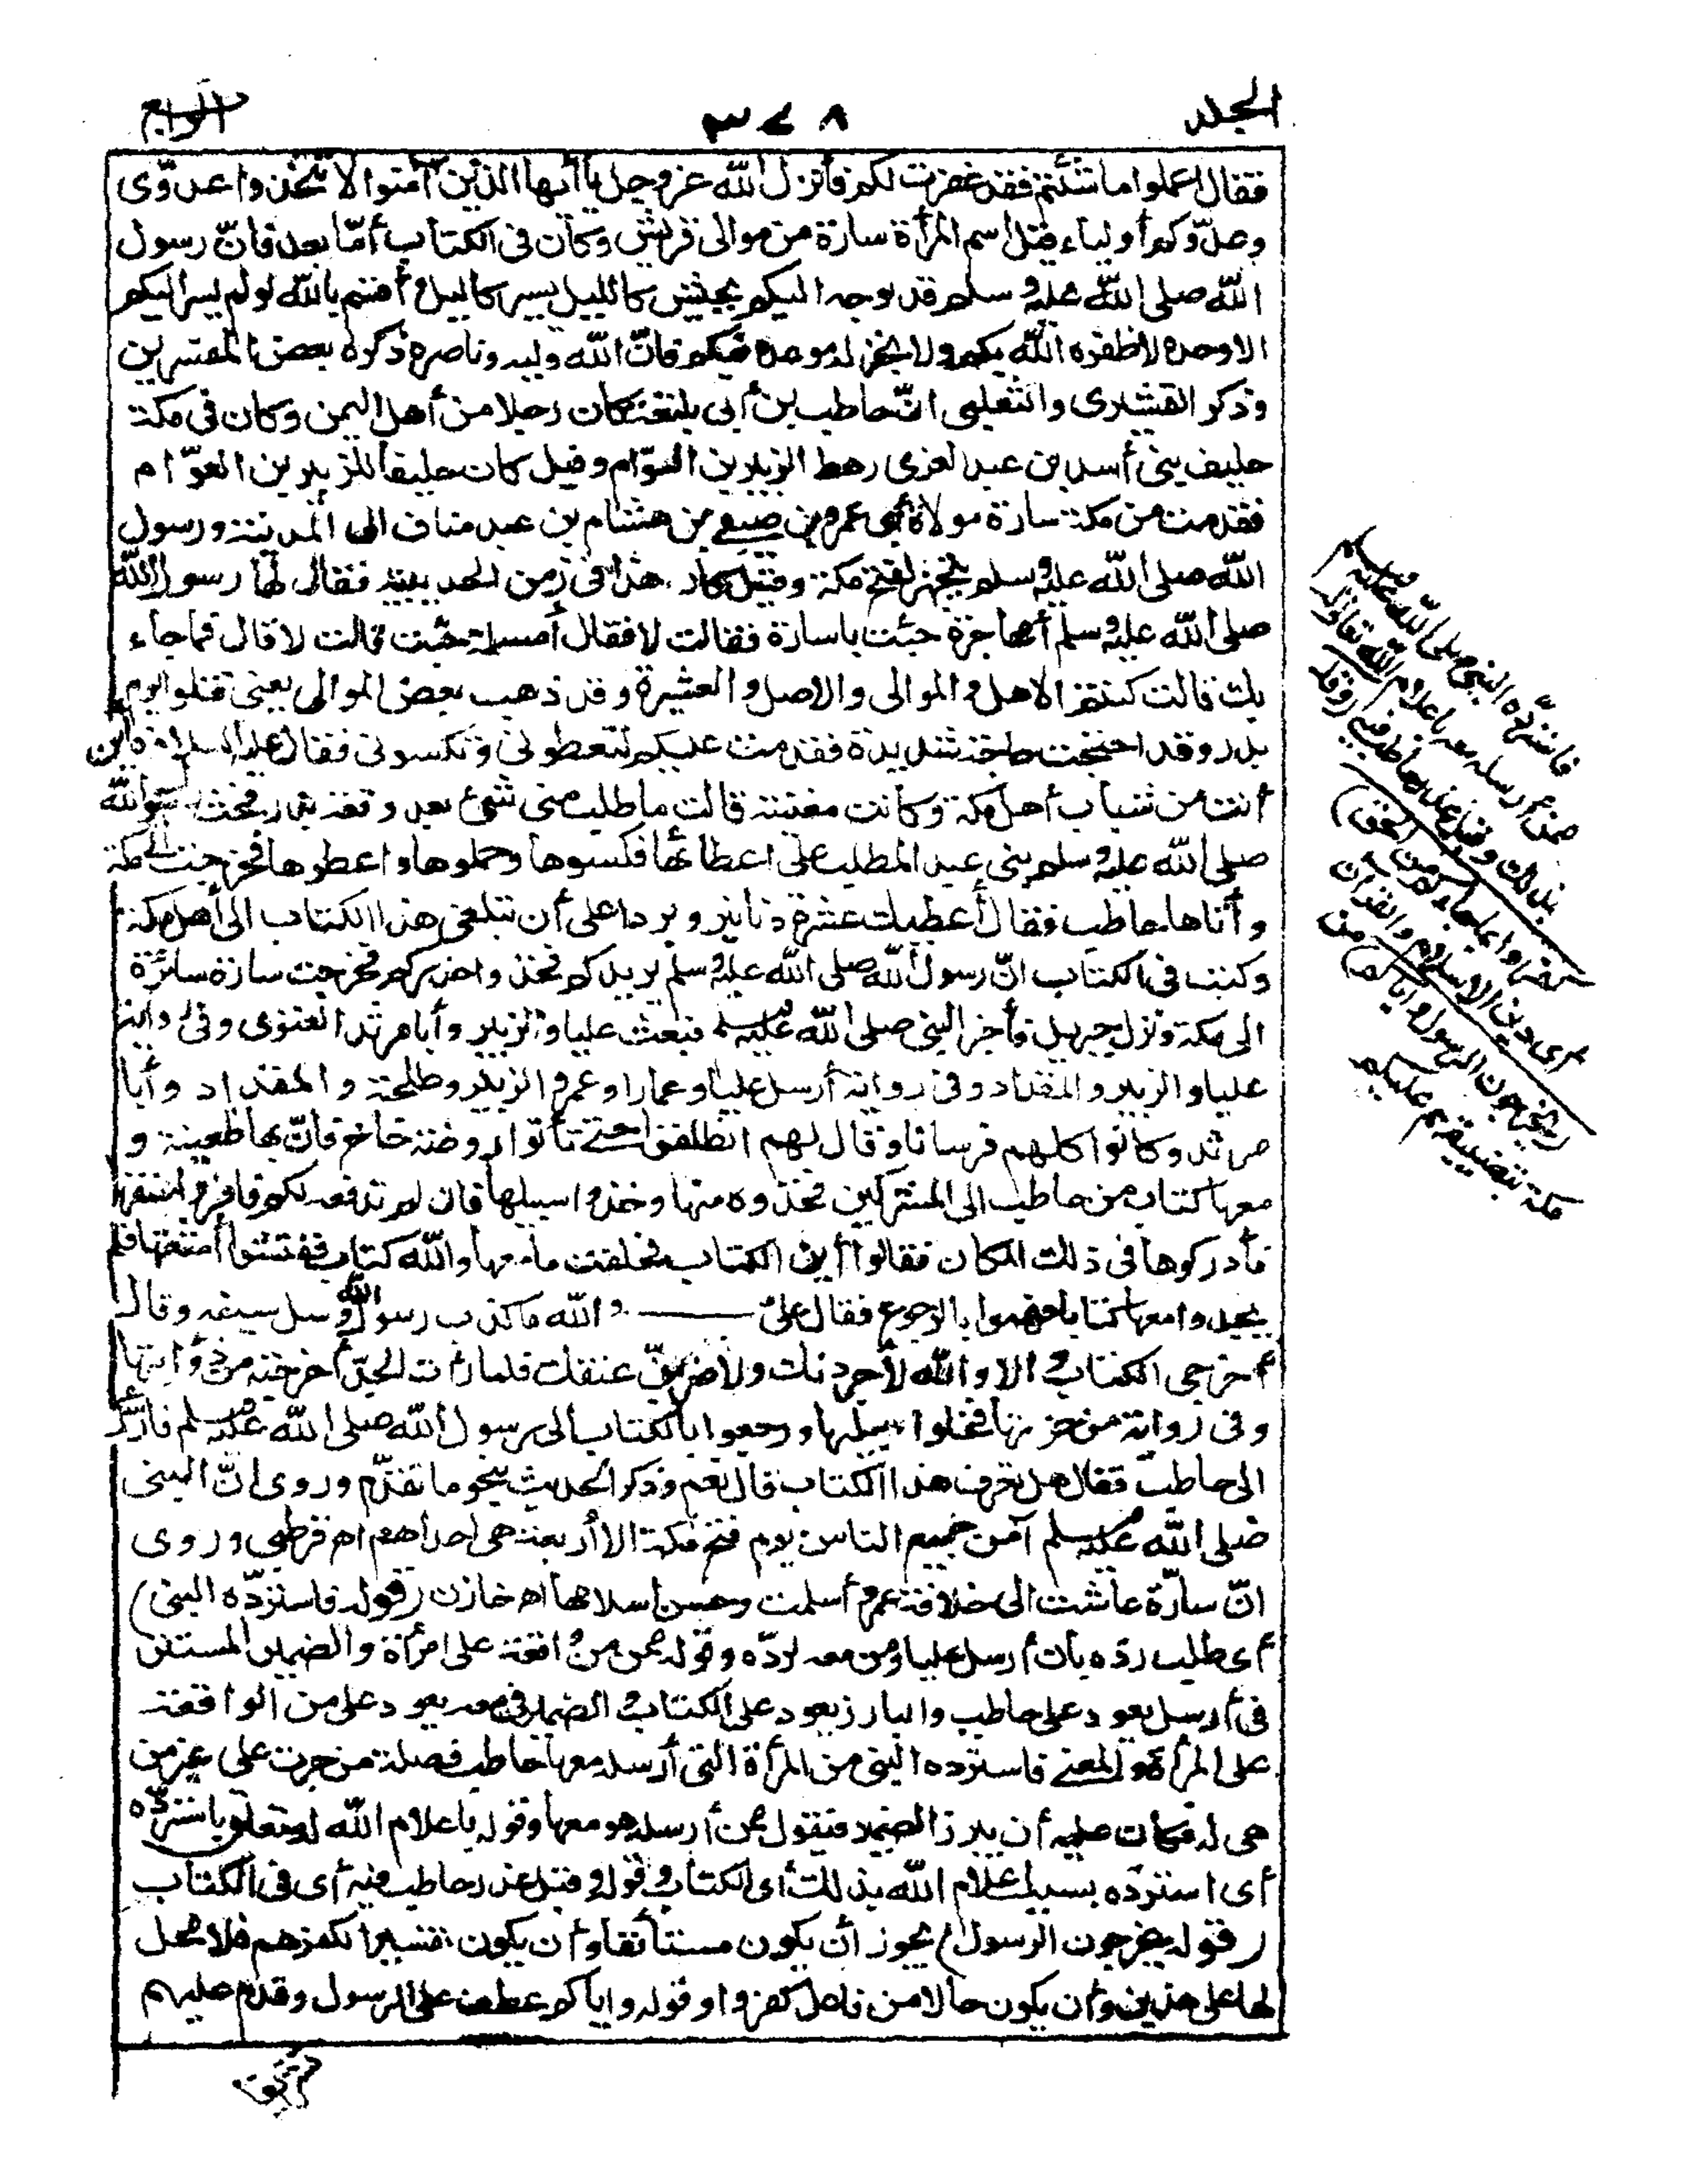 الجلد
٣٤٨
الرابع
فقال اعملوا ما شئتم فقد غفرت لكم فأنزل الله عز وجل يا أيها الذين آمنوا لا تتخذوا عدوّى
وعدوّكم أولياء قيل اسم المرأة سارة من موالى قريش وكان فى الكتاب أمّا بعد فانّ رسول
الله صلى الله عليه وسلم قد توجه اليكم بجيش كالليل يسير كالسيل وأقسم بالله لو لم يسر اليكم
الا وحده لأظفره الله بكم ولأنجز له موعده فيكم فانّ الله وليه وناصره ذكره بعض المفسرين
وذكر القشيرى والثعلبى انّ حاطب بن أبى بلتعة كان رجلا من أهل اليمن وكان فى مكة
حليف بنى أسد بن عبد العزى رهط الزبير بن العوّام وقيل كان حليفا للزبير بن العوّام
فقدمت من مكة سارة مولاة أبى عمرو بن صيفى بن هشام بن عبد مناف الى المدينة ورسول
الله صلى الله عليه وسلم يتجهز لفتح مكة وقيل كان هذا فى زمن الحديبية فقال لها رسول الله
صلى الله عليه وسلم أمهاجرة جئت يا سارة فقالت لا فقال أمسلمة جئت قالت لا قال فما جاء
بك قالت كنتم الاهل والموالى والاصل والعشيرة وقد ذهب بعض الموالى يعنى قتلوا يوم
بدر وقد احتجت حاجة شديدة فقدمت عليكم لتعطونى وتكسونى فقال عليه السلام فأين
أنت من شباب أهل مكة وكانت مغنية قالت ما طلب منى شئ بعد وقعة بدر فحث رسول الله
صلى الله عليه وسلم بنى عبد المطلب على اعطائها فكسوها وحملوها واعطوها فخرجت الى مكة
وأتاها حاطب فقال أعطيك عشرة دنانير وبردا على أن تبلغى هذا الكتاب الى أهل مكة
وكتب فى الكتاب انّ رسول الله صلى الله عليه وسلم يريدكم فخذوا حذركم فخرجت سارة سائرة
الى مكة ونزل جبريل فأخبر النبى صلى الله عليه وسلم فبعث عليا والزبير وأبا مرثد الغنوى وفى رواية
عليا والزبير والمقداد وفى رواية أرسل عليا وعمارا وعمر والزبير وطلحة والمقداد وأبا
مرثد وكانوا كلهم فرسانا وقال لهم انطلقوا حتى تأتوا روضة خاخ فانّ بها ظعينة و
معها كتاب من حاطب الى المشركين فخذوه منها وخذوا سبيلها فان لم تدفعه لكم فاضربوا عنقها
فأدركوها فى ذلك المكان فقالوا أين الكتاب فحلفت ما معها والله كتاب ففتشوا أمتعتها فلم
يجدوا معها كتابا فهموا بالرجوع فقال علىّ والله ما كذب رسول الله وسل سيفه وقال
أخرجى الكتاب والا والله لأجردنك ولأضربنّ عنقك فلما رأت الجدّ أخرجته من ذؤابتها
وفى رواية من حجزتها فخلوا سبيلها ورجعوا بالكتاب الى رسول الله صلى الله عليه وسلم فأرسل
الى حاطب فقال هل تعرف هذا الكتاب قال نعم وذكر الحديث بنحو ما تقدّم وروى انّ النبى
صلى الله عليه وسلم آمن جميع الناس يوم فتح مكة الا أربعة هى احداهم اه قرطبى وروى
انّ سارّة عاشت الى خلافة عمر وأسلمت وحسن اسلامها اه خازن (قوله فاستردّه النبى)
أى طلب ردّه بأن أرسل عليا ومن معه لردّه وقوله ممن من واقعة على امرأة والضمير المستتر
فى أرسل يعود على حاطب والبارز يعود على الكتاب والضمير فى معه يعود على من الواقعة
على المرأة والمعنى فاستردّه النبى من المرأة التى أرسله معها حاطب فصلة من جرت على غير من
هى له فكان عليه أن يبرز الضمير فيقول ممن أرسله هو معها وقوله باعلام الله له متعلق باستردّه
أى استردّه بسبب اعلام الله بذلك أى الكتاب وقوله وقبل عذر حاطب فيه أى فى الكتاب
(قوله يخرجون الرسول) يجوز أن يكون مستأنفا وأن يكون تفسيرا لكفرهم فلا محل
لها على هذين وأن يكون حالا من فاعل كفروا وقوله واياكم عطف على الرسول وقدّم عليهم
فاستردّه النبى صلى الله عليه وسلم
ممن أرسله معه باعلام الله تعالى له
بذلك وقبل عذر حاطب فيه (وقد
كفروا بما جاءكم من الحق)
أى دين الاسلام والقرآن
(يخرجون الرسول واياكم) من
مكة بتضييقهم عليكم